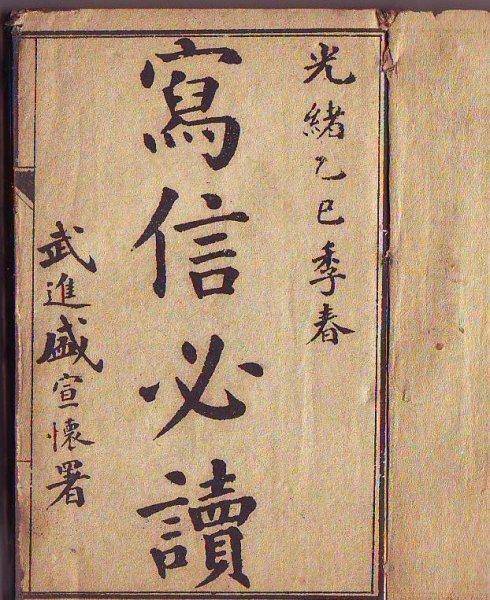 光緒乙巳季春
寫信必讀
武進盛宣懷署